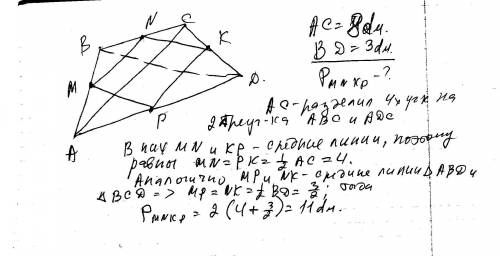 N C
B K
M D.
P
A
AC = 8дм.
BD = 3дм.
P MNKP - ?
AC - разделил 4х уг. на
2 треуг-ка ABC и ADC
В них MN и KP - средние линии, поэтому
равны MN = PK = 1/2 AC = 4.
Аналогично MP и NK - средние линии △ ABD и
△ BCD => MP = NK = 1/2 BD = 3/2; тогда
P MNKP = 2 (4 + 3/2) = 11 дм.